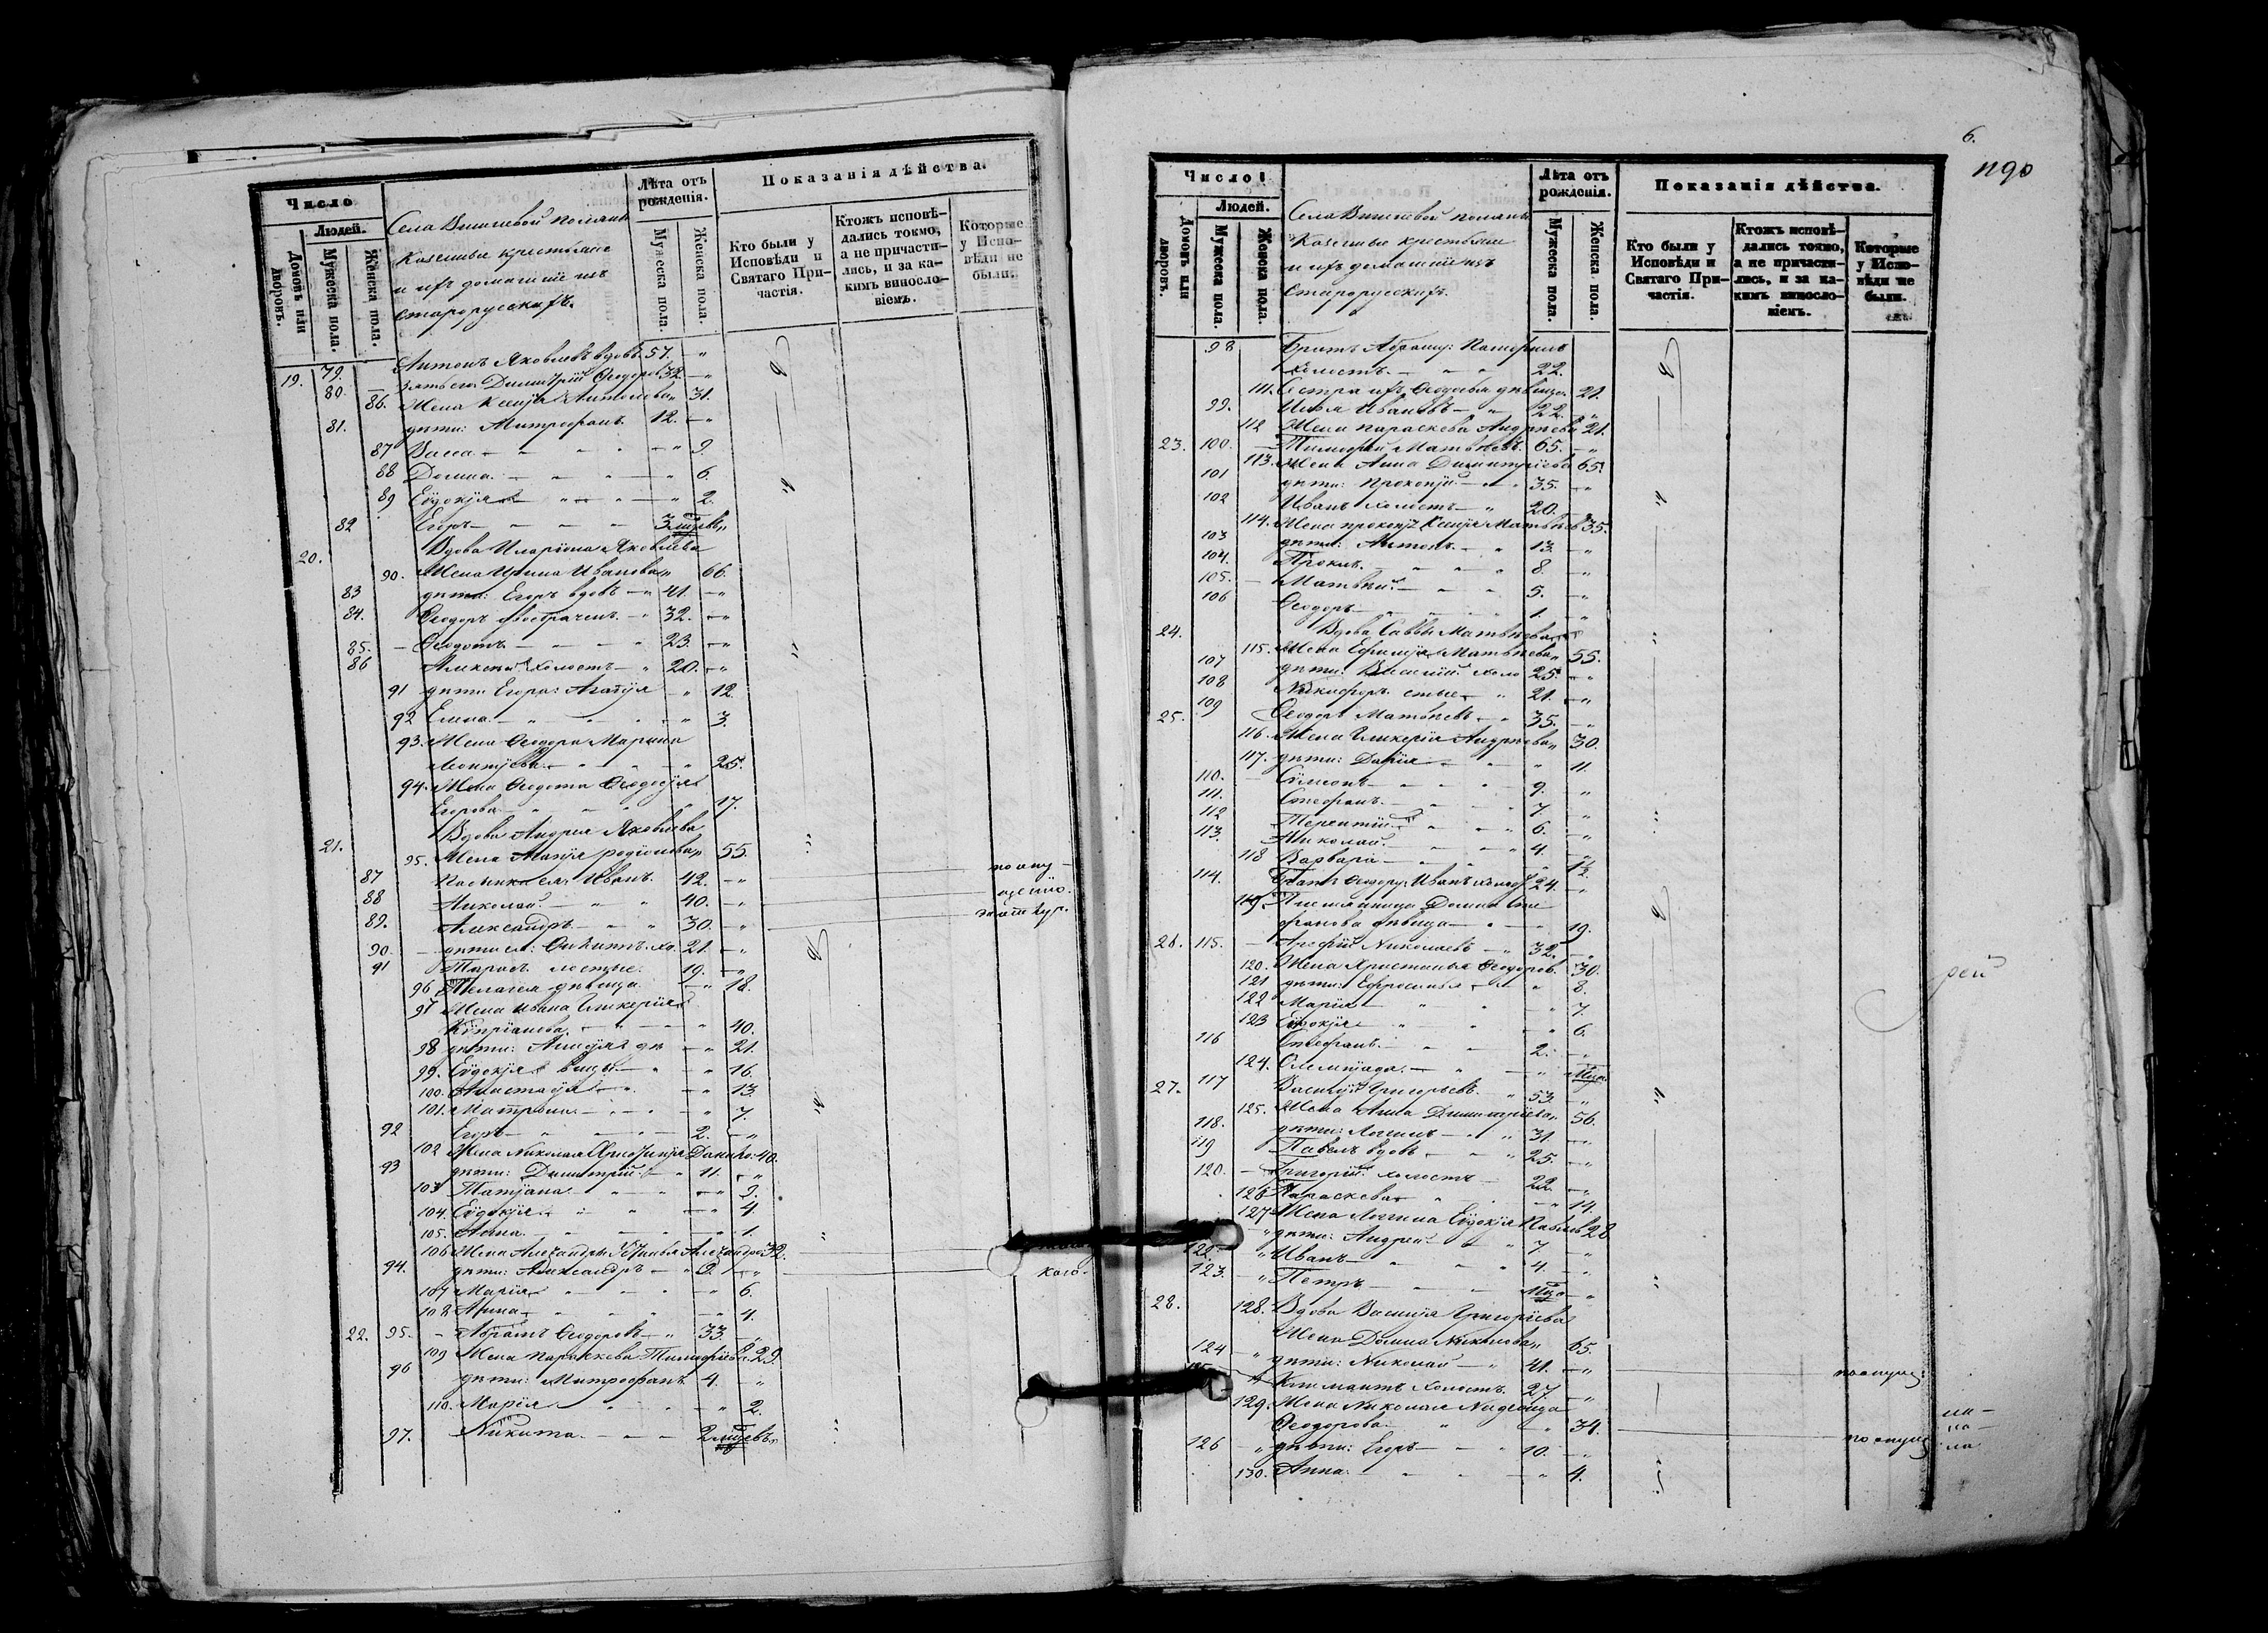 Число
Людей.
Домовъ или дворовъ.
Мужеска пола.
Женска пола.
Села Вишневой поляны
Казенные крестьяне
и ихъ домашніе изъ
старорусскихъ.
Лѣта отъ рожденія.
Мужеска пола.
Женска пола.
Показанія дѣйства.
Кто были у Исповѣди и Святаго Причастія.
Ктожъ исповѣдались токмо, а не причастились, и за какимъ винословіемъ.
Которые у Исповѣди не были.
19. 79. Антонъ Яковлевъ вдовъ. 57. "
80. зять его Димитрій Ѳеодоров 32. "
86. Жена Ксенія Антонова " 31.
81. дѣти: Митрофанъ 12. "
87 Васса " 9.
88 Домна " 6.
89 Еѵдокія " 2.
82 Егоръ 3
20. Вдова Иларіона Яковлева
90. Жена Ирина Иванова " 66.
83 дѣти: Егоръ вдовъ 41. "
84. Ѳеодоръ 32. "
85. Ѳеодотъ 23. "
86 Алексѣй холостъ 20. "
91 дѣти Егора: Агаѳія " 12.
92 Елена " 3.
93. Жена Ѳеодора Марина
" 25.
94. Жена Ѳеодота Ѳеодосія
Егорова " 17.
21. Вдова Андрея Яковлева
95. Жена Марія Родіонова " 55.
87 Пасынки ея: Иванъ 42. "
88 Николай 40. "
89. Александръ 30. "
90. дѣти ея: хо 21. "
91 Тарасъ лостые 19. "
96 Пелагея дѣвица " 18.
97 Жена Ивана Гликерія
Кипріанова " 40.
98 дѣти: дѣ " 21.
99. Еѵдокія вицы " 16.
100. Анастасія " 13.
101. Матрона " 7.
92 Егоръ 2. "
102 Жена Николая 40.
93 дѣти: Димитрій 11. "
103 Татіана " 9.
104. Еѵдокія " 4.
105. Анна " 1.
106 Жена Александра Устинья Александро 32.
94. дѣти: Александръ 9. "
107 Марія " 6.
108 Арина " 4.
22. 95. Абрамъ Ѳеодоровъ 33. "
109 Жена Параскева Тимофѣева 29.
96 дѣти: Митрофанъ 4. "
110. Марія " 2.
97. Никита 2
6.
Число
Людей.
Домовъ или дворовъ.
Мужеска пола.
Женска пола.
Села Вишневой поляны
Казенные крестьяне
и ихъ домашніе изъ
старорусскихъ.
Лѣта отъ рожденія.
Мужеска пола.
Женска пола.
Показанія дѣйства.
Кто были у Исповѣди и Святаго Причастія.
Ктожъ исповѣдались токмо, а не причастились, и за какимъ винословіемъ.
Которые у Исповѣди не были.
98 Братъ Абраму:
холостъ 22.
111. Сестра ихъ Ѳеодосья дѣвица 21.
99. Илья Ивановъ 22. "
112 Жена Параскева Андреева 21.
23. 100. Тимофей Матвѣевъ 65. "
113. Жена Анна Димитріева 65.
101 дѣти: Прокопій 35. "
102 Иванъ холостъ 20. "
114. Жена Прокопія Ксенія Матвѣев 35.
103 дѣти: Антонъ 13. "
104. Проклъ 8. "
105. Матвѣй 5. "
106 Ѳеодоръ 1. "
24. Вдова Саввы Матвѣева
115. Жена Ефимія Матвѣева " 55.
107 дѣти: Василій холо 25. "
108 Никифоръ стые 21. "
25. 109 Ѳеодоръ Матвѣевъ 35. "
116. Жена Гликерія Андреева " 30.
117. дѣти: Дарія " 11.
110. Сѵмеонъ 9. "
111. Стефанъ 7. "
112 Терентій 6. "
113. Николай 4. "
118 Варвара
114. Братъ Ѳеодору: Иванъ холост 24. "
119. Племянница Домна Сте
фанова дѣвица " 19.
26. 115. Николаевъ 32. "
120. Жена Христинья Ѳеодоров. 30.
121 дѣти: Ефросинья " 8.
122 Марія " 7.
123 Еѵдокія " 6.
116 Стефанъ 2. "
124. Олимпіада "
27. 117 Василій Григорьевъ 53. "
125. Жена Анна Димитріева " 56.
118. дѣти: Логгинъ 31. "
119 Павелъ вдовъ 25. "
120. Григорій холостъ 22. "
126 Параскева " 14.
127 Жена Логгина Еѵдокія Павлов 28
дѣти: Андрей 7. "
122. Иванъ 4. "
123. Петръ "
28. 128. Вдова Василія Григоріева
Жена Домна " 65.
124 дѣти: Николай 41. "
125 Климантъ холостъ 27. "
129. Жена Николая Надежда
Ѳеодорова " 34.
126 дѣти: Егоръ 10. "
130. Анна " 4.